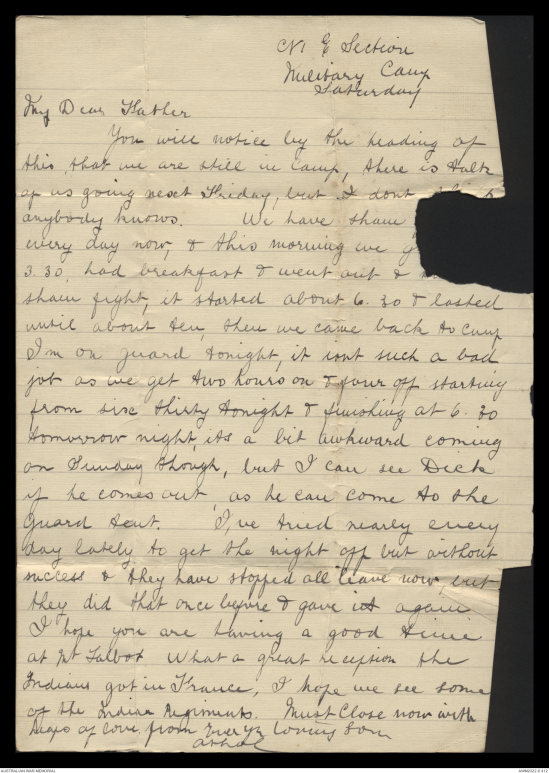 No 1 E Section
Military Camp
Saturday
My Dear Father
You will notice by the heading of
this, that we are still in camp, there is talk
of us going next Friday, but I dont
anybody knows. We have sham
every day now, & this morning we
3.30, had breakfast & went out &
sham fight, it started about 6.30 & lasted
until about ten, then we came back to camp
I'm on guard tonight, it isnt such a bad
job as we get two hours on & four off starting
from six thirty tonight & finishing at 6.30
tomorrow night, its a bit awkward coming
on Sunday though, but I can see Dick
if he comes out, as he can come to the
guard tent. I,ve tried nearly every
day lately to get the night off but without
success & they have stopped all leave now, but
they did that once before & gave it again
I hope you are having a good time
at Mt Talbot What a great reception the
Indians got in France, I hope we see some
of the Indian Regiments. Must Close now with
heaps of love from Your loving Son
Athol
AUSTRALIAN WAR MEMORIAL
AWM2022.6.412